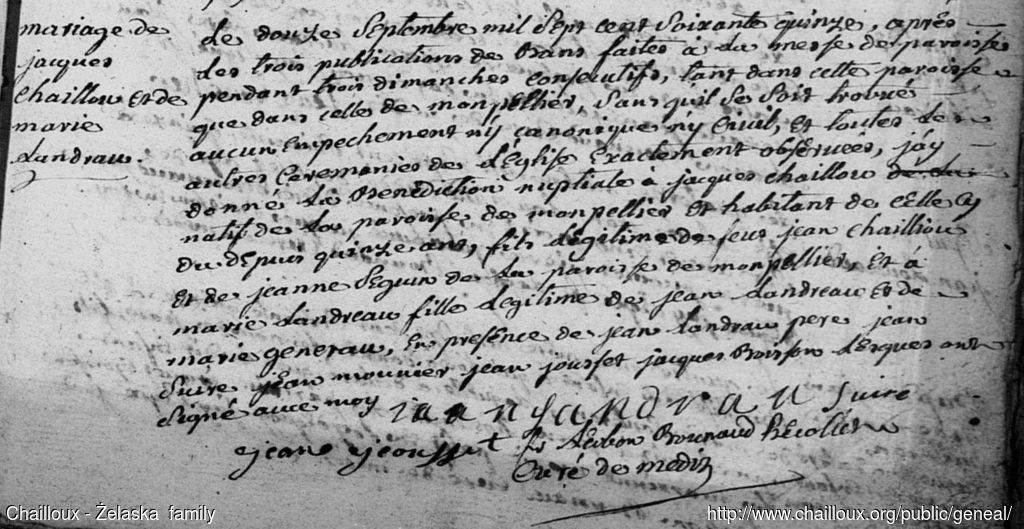 mariage de
jacques
chaillou et de
marie
Landrau.
Le douze Septembre mil Sept cent Soixante quinze, après
des trois publications de Bans faites a La messe de paroisse
pendant trois dimanches consecutifs, tant dans celle paroisse
que dans celle de monpellier, Sans qu'il se soit trouvé
aucun Empechement n'y canonique n'y Civil, et toutes les
autres Ceremonies de L'Eglise Exactement observées, j'ay
donné La Benediction nuptiale à jacques chaillou
natif de La paroisse de monpellier et habitant de celle Cy
du depuis quinze ans, fils Legitime de feus jean chailliou
et de jeanne Seguin de La paroisse de monpellier, et à
marie Landreau fille Legitime de jean Landreau et de
marie generau, en presence de jean Landrau pere jean
Suire jean mounier jean jousset jacques Boisson Lesques ont
Signé avec moy jean Landrau Suire
jean jeousset fr Bounaud Recolet
Curé de medis
Chailloux - Żelaska family
http://www.chailloux.org/public/geneal/